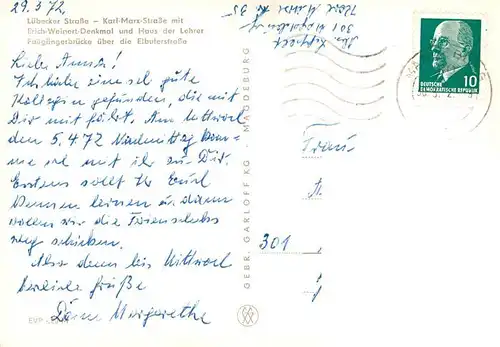 29.3.72,
Lübecker Straße – Karl-Marx-Straße mit
Erich-Weinert-Denkmal und Haus der Lehrer
Pfingstbrücke über die Elbuferstraße
Liebe Anna!
Ich habe eine sehr gute
Kollegin gefunden, die mit
Dir mit fährt. Am Mittwoch
den 5.4.72 Nachmittag kom-
me ich mit ihr zu Dir.
Erstens sollt Ihr Euch
kennen lernen u. dann
wollen wir die Ferienschecks
weg schicken.
Also dann bis Mittwoch
herzliche Grüße
Deine Margarethe
EVP
GEBR. GARLOFF KG · MAGDEBURG
301 Magdeburg
Karl Marx Str. 35
DEUTSCHE
DEMOKRATISCHE REPUBLIK
10
Frau
A.
301